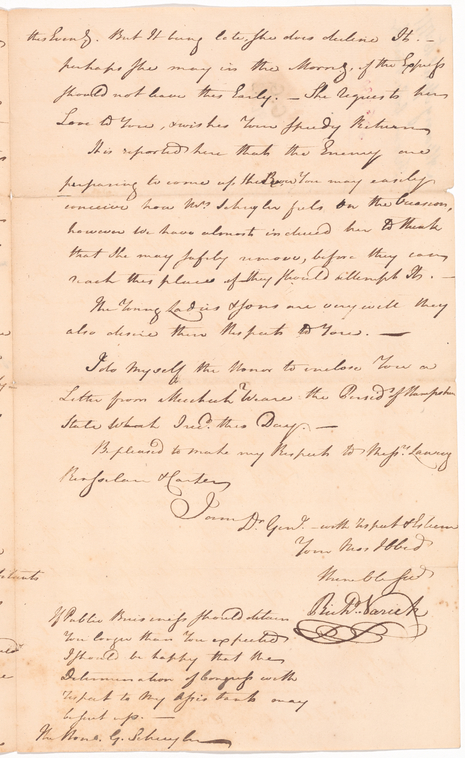 this Eveng. But It being late, she does decline It. —
perhaps she may in the Morng, if the Express
should not leave this Early. — She requests her
Love to You, & wishes Your speedy Return
It is reported here that the Enemy are
preparing to come up the River You may easily
conceive how Mrs. Schuyler feels on the Occasion,
however we have almost induced her to think
that She may safely remove, before they can
reach this place if they should attempt It. —
The Young Ladies & sons are very well they
also desire their Respects to You. —
I do myself the Honor to inclose You a
Letter from Meshech Weare the Presidt. of Hampshire
State which I recd. this Day. —
Be pleased to make my Respects to Messrs.
Renselaer & Carter
I am Dr. Genl. — with respect & Esteem
Your Most Obed.
Humble Servt
Richd. Varick
If Public Buissness should detain
You longer than You expected
I should be happy that the
Determination of Congress with
respect to My Assistants may
be sent up. —
The Hono. G. Schuyler